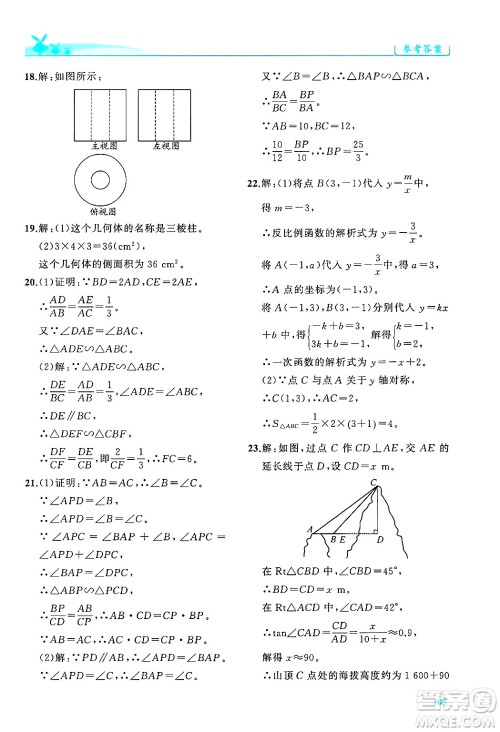 参考答案
18.解:如图所示:
主视图 左视图
俯视图
19.解:(1)这个几何体的名称是三棱柱.
(2)3×4×3=36(cm²),
这个几何体的侧面积为 36 cm².
20.(1)证明:∵BD=2AD,CE=2AE,
∴AD/AB=AE/AC=1/3.
又∵∠DAE=∠BAC,
∴△ADE∽△ABC.
(2)解:∵△ADE∽△ABC,
∴DE/BC=AD/AB=1/3.
∵DE∥BC,
∴△DEF∽△CBF,
∴DF/CF=DE/CB=2/CF=1/3,∴FC=6.
21.(1)证明:∵AB=AC,∴∠B=∠C.
∵∠APD=∠B,
∴∠APD=∠B=∠C.
∵∠APC=∠BAP+∠B,
∠APC=∠APD+∠DPC,
∴∠BAP=∠DPC,
∴△ABP∽△PCD,
∴BP/CD=AB/CP,
∴AB·CD=CP·BP.
∵AB=AC,∴AC·CD=CP·BP.
(2)解:∵PD∥AB,∴∠APD=∠BAP.
∵∠APD=∠C,∴∠BAP=∠C.
又∵∠B=∠B,∴△BAP∽△BCA,
∴BA/BC=BP/BA.
∵AB=10,BC=12,
∴10/12=BP/10,∴BP=25/3.
22.解:(1)将点 B(3,-1)代入 y=m/x,
得 m=-3,
∴反比例函数的解析式为 y=-3/x.
将 A(-1,a)代入 y=-3/x,得 a=3,
∴点 A 的坐标为(-1,3).
将点 A(-1,3),B(3,-1)分别代入 y=kx
+b,得{-k+b=3, 3k+b=-1,解得{k=-1, b=2,
∴一次函数的解析式为 y=-x+2.
(2)∵点 C 与点 A 关于 y 轴对称,
∴C(1,3),
∴S△ABC=1/2×2×(3+1)=4.
23.解:如图,过点 C 作 CD⊥AE,交 AE 的
延长线于点 D,设 CD=x m.
C
A B E D
在 Rt△CBD 中,∠CBD=45°,
∴BD=CD=x m.
在 Rt△CAD 中,∠CAD=42°,
∴tan∠CAD=CD/AD=x/(10+x)≈0.9,
解得 x=90.
∴山顶 C 点处的海拔高度约为 1 600+90